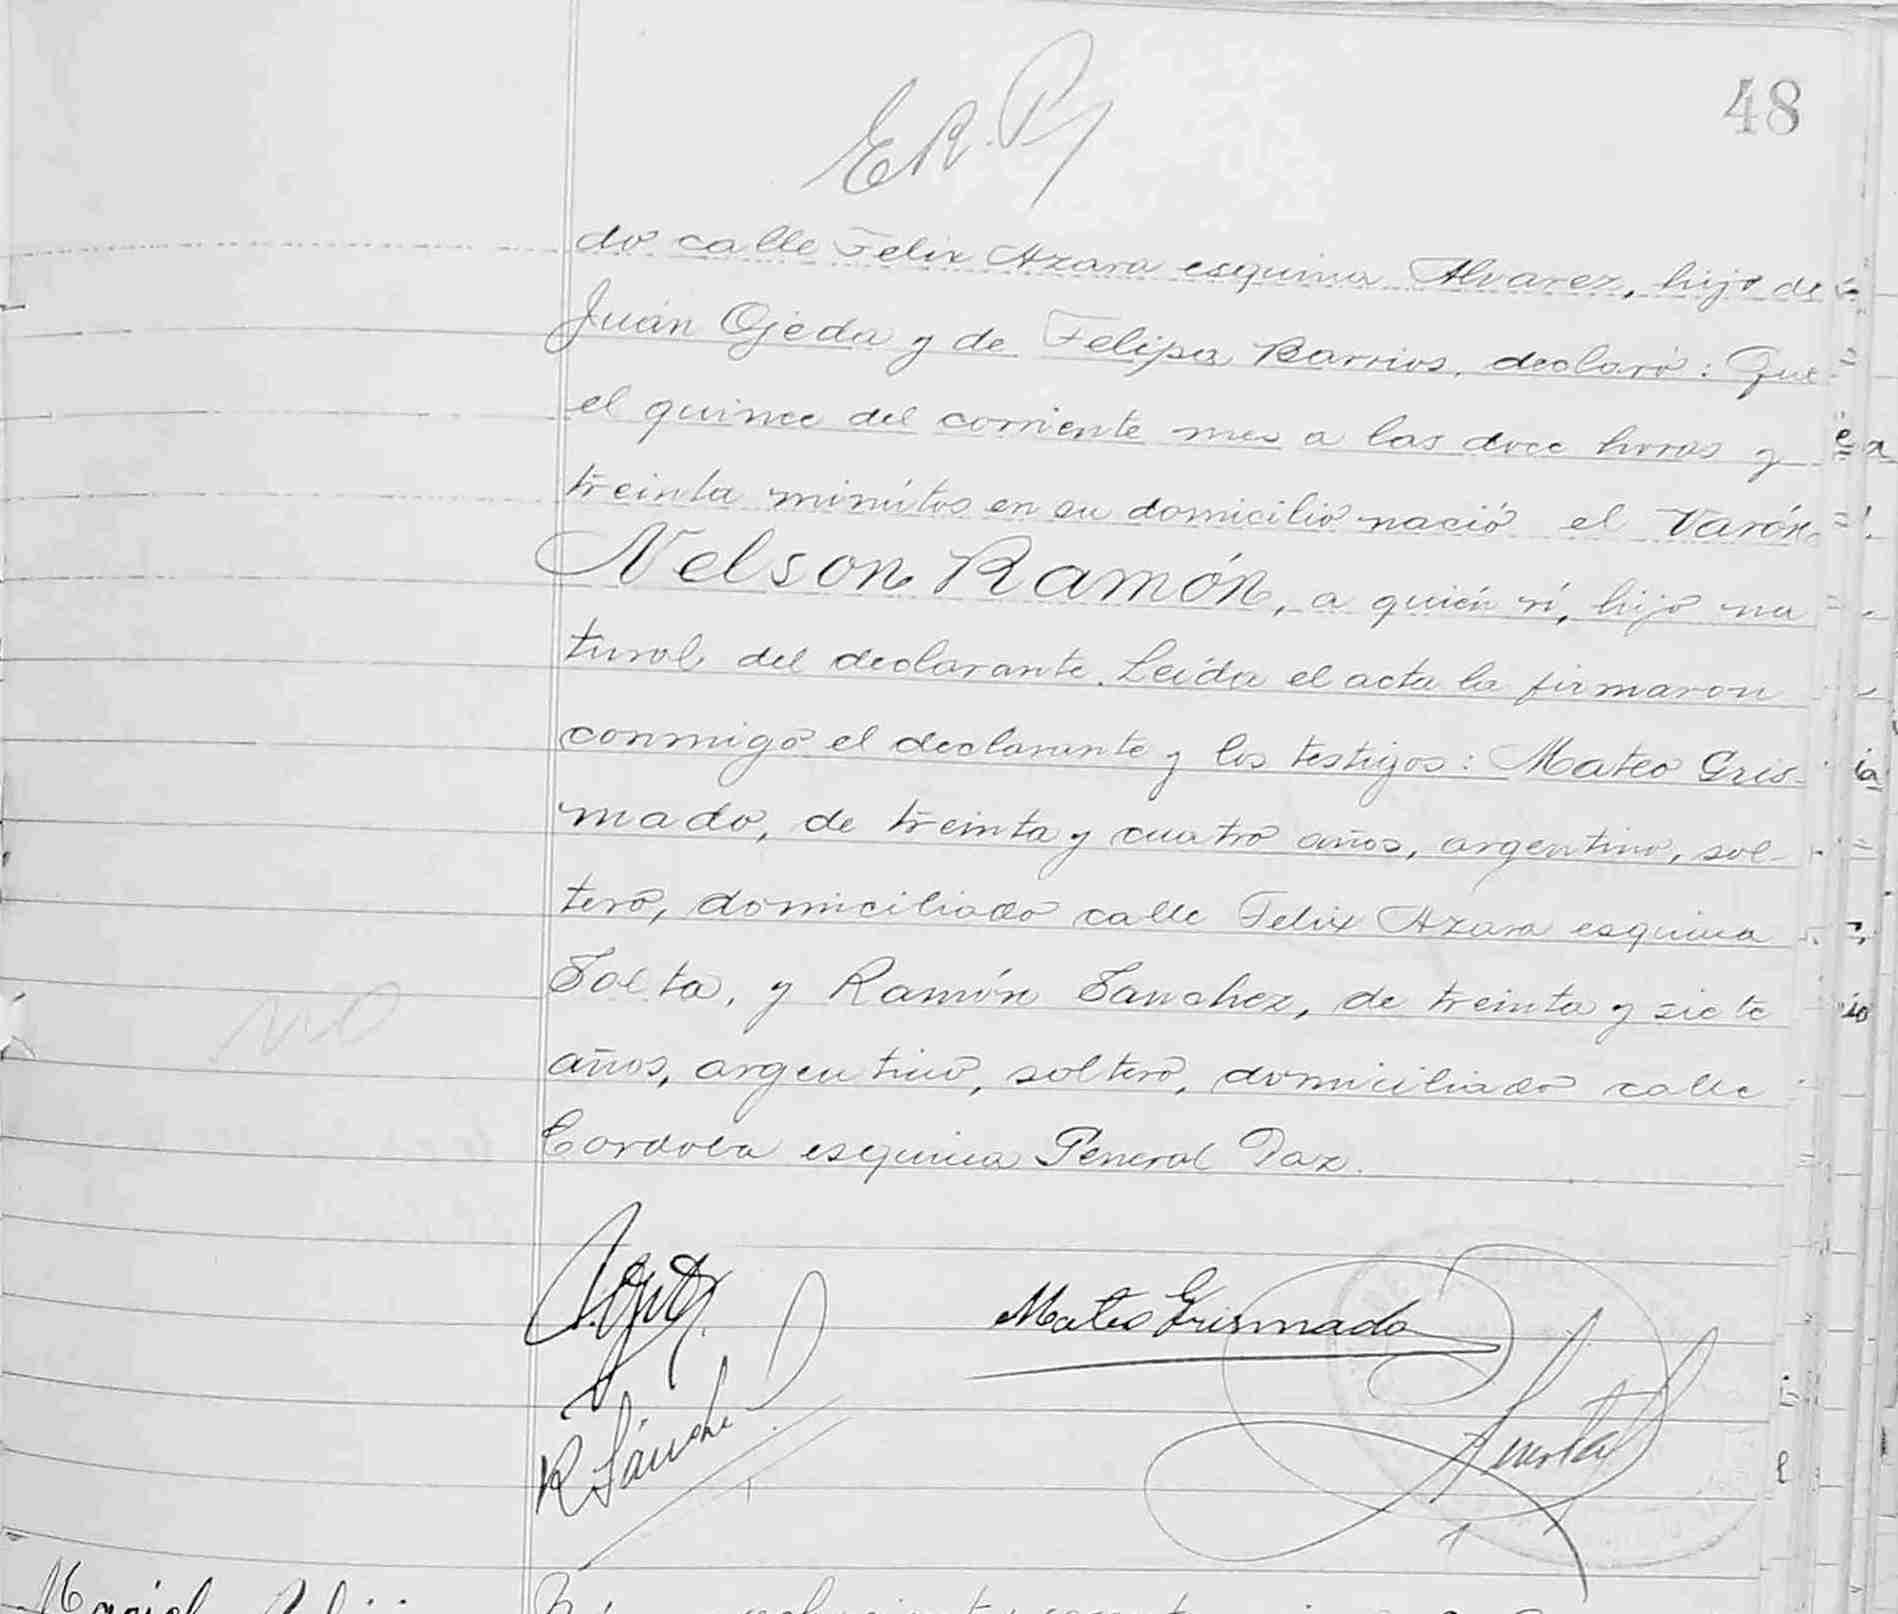 48
E R. P
do calle Felix Azara esquina Alvarez, hijo de
Juán Ojeda y de Felipa Barrios, declaró: Que
el quince del corriente mes a las doce horas y
treinta minútos en su domicilio nació el Varón
Nelson Ramón, a quién ví, hijo na
tural del declarante. Leída el acta la firmaron
conmigo el declarante y los testigos: Mateo Gris-
mado, de treinta y cuatro años, argentino, sol-
tero, domiciliado calle Felix Azara esquina
Salta, y Ramón Sanchez, de treinta y siete
años, argentino, soltero, domiciliado calle
Cordoba esquina General Paz.
Mateo Grismado
R Sánche